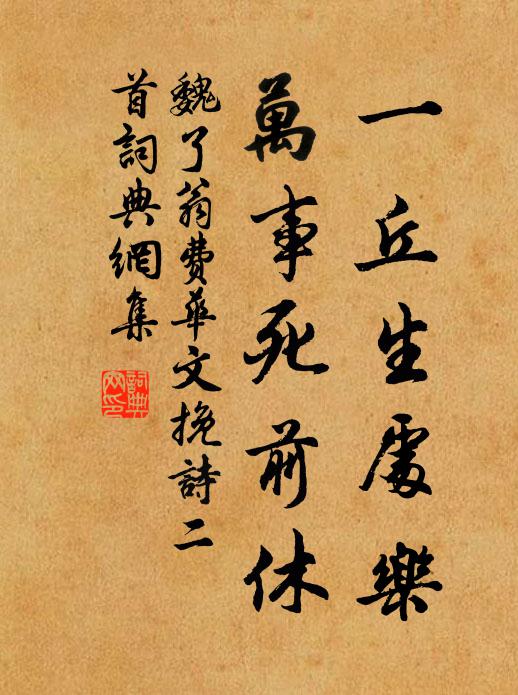 一丘生處樂
萬事死前休
魏了翁費華文挽詩二
首詞典網集
詞典网印